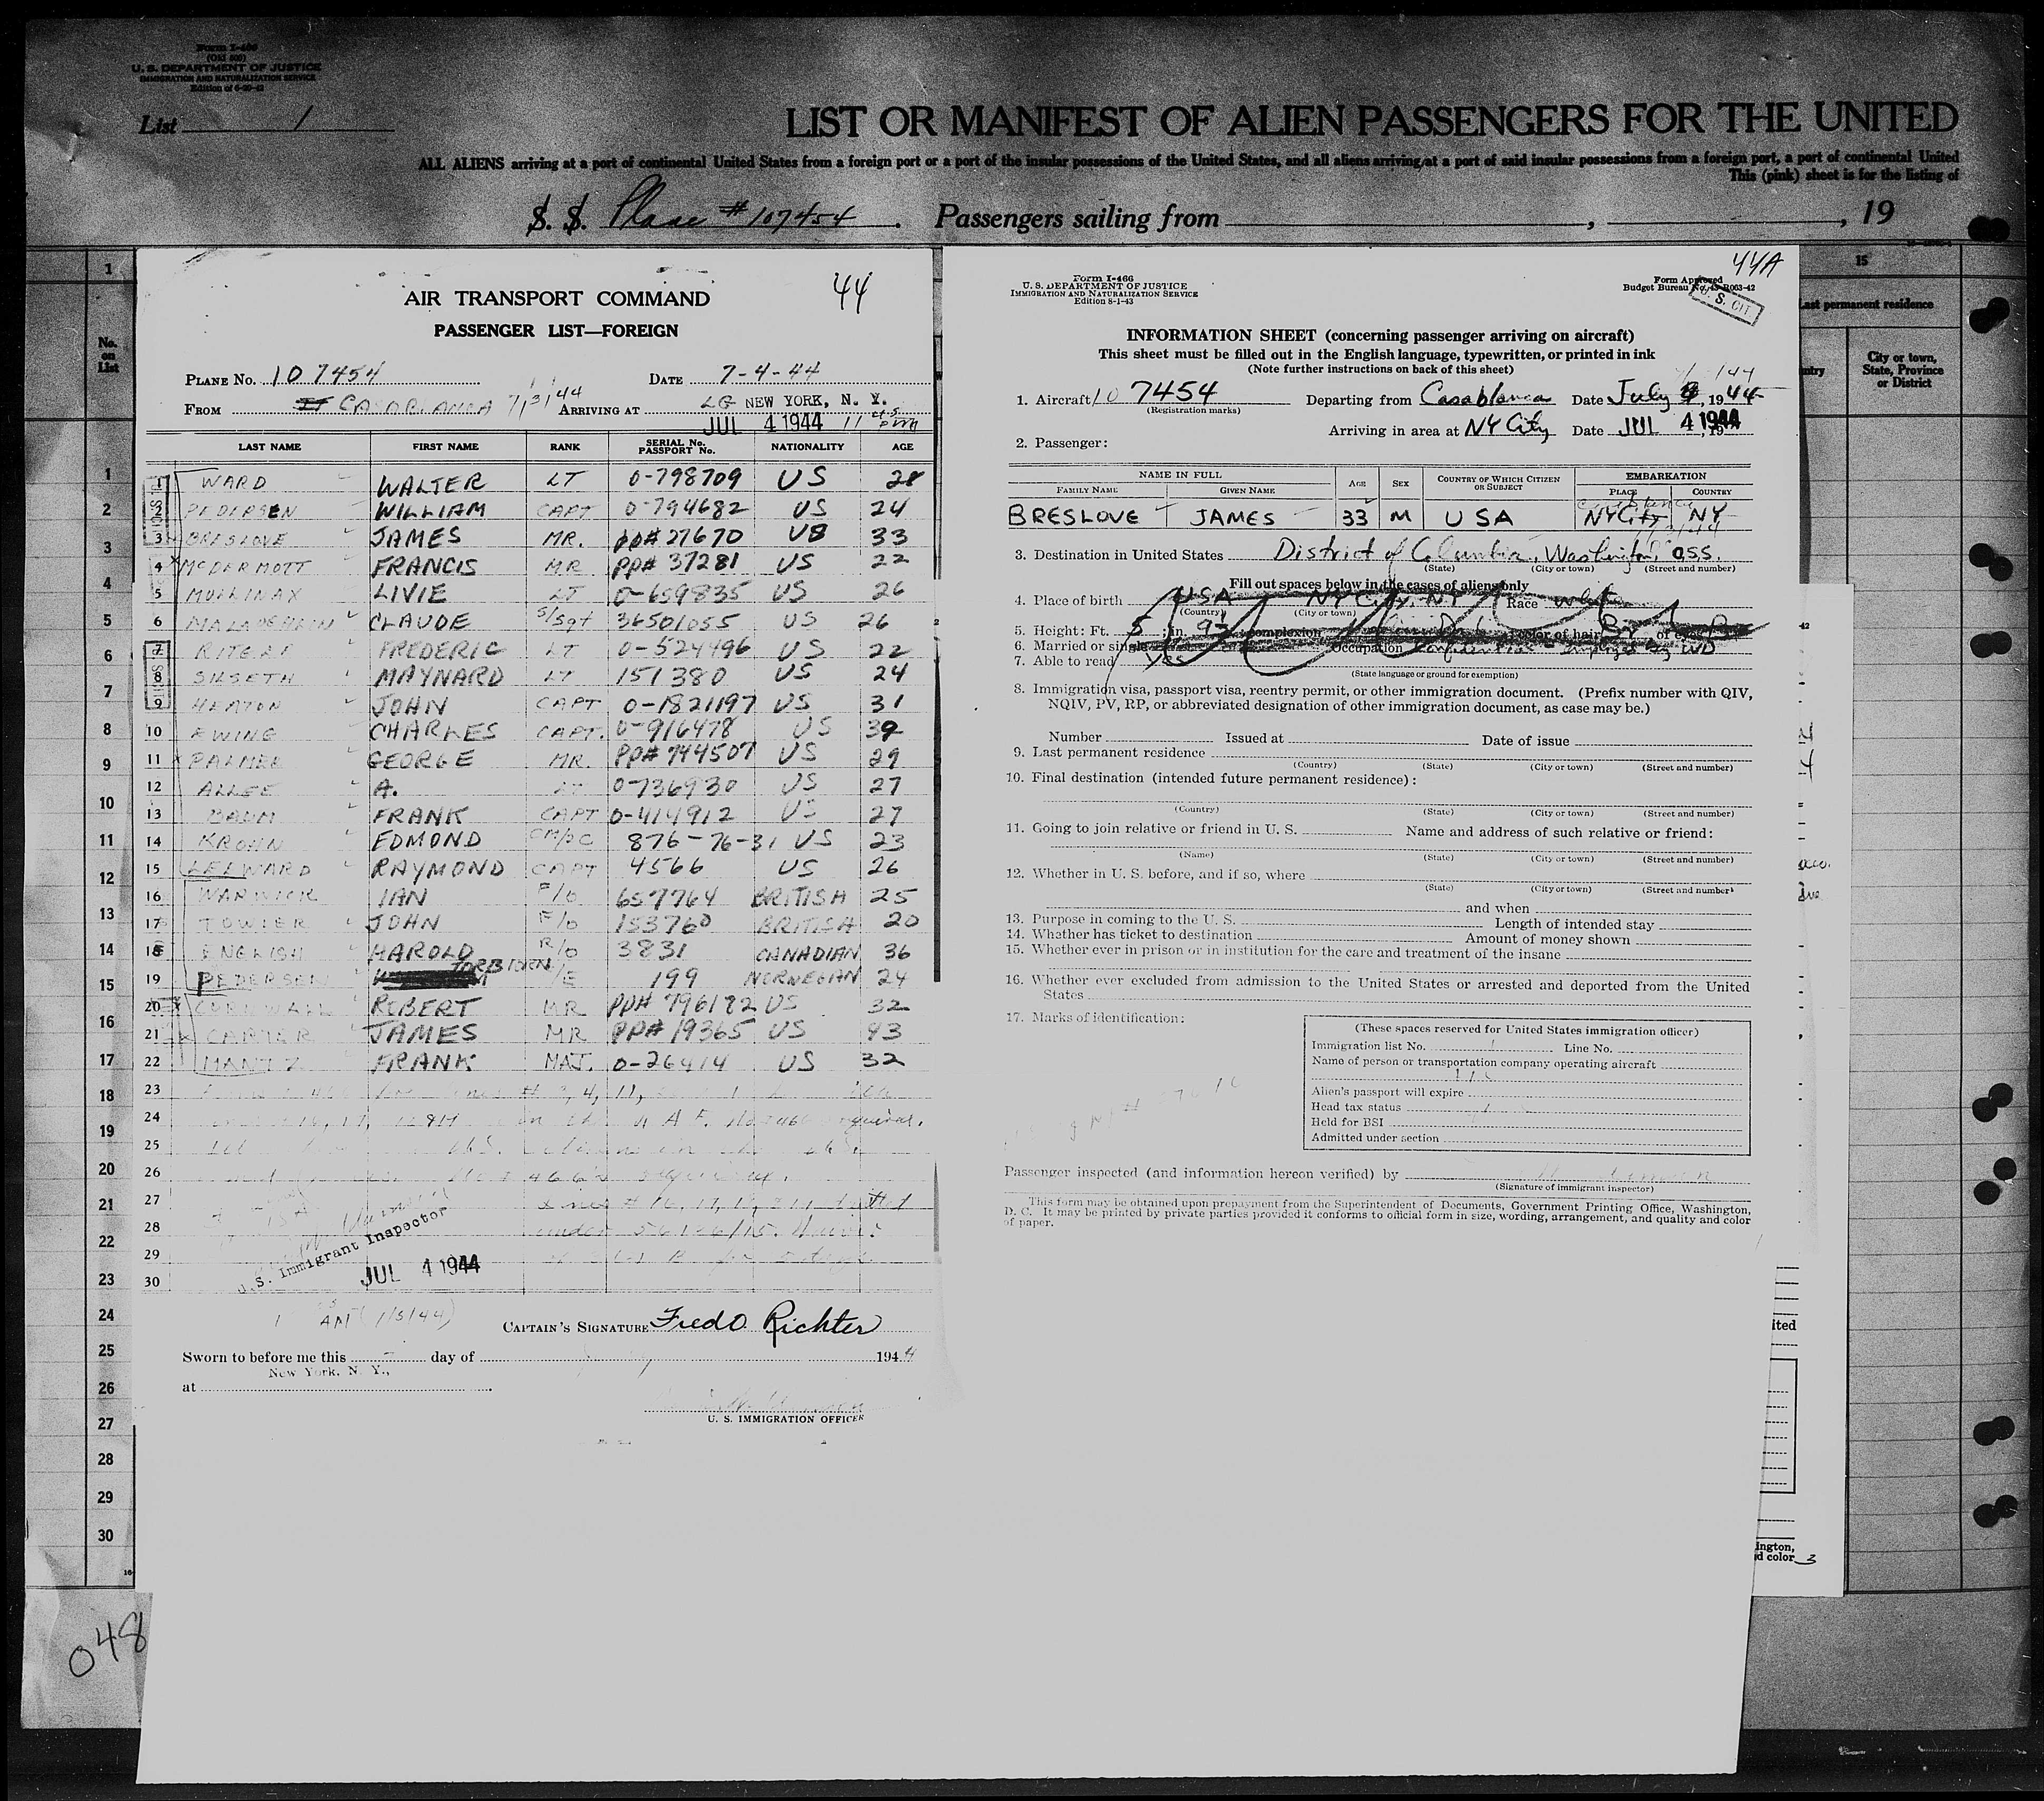 Form I-466
(Old 500)
U. S. DEPARTMENT OF JUSTICE
IMMIGRATION AND NATURALIZATION SERVICE
Edition of 6-20-42
List 1
LIST OR MANIFEST OF ALIEN PASSENGERS FOR THE UNITED
ALL ALIENS arriving at a port of continental United States from a foreign port or a port of the insular possessions of the United States, and all aliens arriving at a port of said insular possessions from a foreign port, a port of continental United
This (pink) sheet is for the listing of
S. S. Plane # 107454. Passengers sailing from , , 19
44
AIR TRANSPORT COMMAND
PASSENGER LIST—FOREIGN
PLANE No. 107454 DATE 7-4-44
FROM CASABLANCA 7/3/44 ARRIVING AT LG NEW YORK, N. Y.
JUL 4 1944 11
LAST NAME FIRST NAME RANK SERIAL No. PASSPORT No. NATIONALITY AGE
1 WARD WALTER LT 0-798709 US 28
2 PEDERSEN WILLIAM CAPT 0-794682 US 24
3 BRESLOVE JAMES MR. pp# 27670 US 33
4 McDERMOTT FRANCIS MR PP# 37281 US 22
5 MULLINAX LIVIE LT 0-659835 US 26
6 CLAUDE S/Sgt 36501055 US 26
7 FREDERIC LT 0-524496 US 22
8 MAYNARD LT 151380 US 24
9 HEATON JOHN CAPT 0-1821197 US 31
10 EWING CHARLES CAPT. 0-916478 US 39
11 PALMER GEORGE MR. PP# 744507 US 29
12 ALLEE A. LT 0-736930 US 27
13 BAUM FRANK CAPT 0-414912 US 27
14 KROHN EDMOND 876-76-31 US 23
15 LEEWARD RAYMOND CAPT 4566 US 26
16 WARWICK IAN F/O 657764 BRITISH 25
17 TOWLER JOHN F/O 153760 BRITISH 20
18 ENGLISH HAROLD R/O 3831 CANADIAN 36
19 PEDERSEN TORBJORN F/E 199 NORWEGIAN 24
20 CORNWALL ROBERT MR PP# 796182 US 32
21 CARTER JAMES MR PP# 19365 US 43
22 MANTZ FRANK MAJ. 0-26414 US 32
23
24
25
26
27
28
29
30
U. S. Immigrant Inspector
JUL 4 1944
CAPTAIN'S SIGNATURE Fred O. Richter
Sworn to before me this day of 1944
New York, N. Y.,
at
U. S. IMMIGRATION OFFICER
44A
Form I-466
U. S. DEPARTMENT OF JUSTICE
IMMIGRATION AND NATURALIZATION SERVICE
Edition 8-1-43
Form Approved
Budget Bureau No. 43-R063-42
U. S. CIT.
INFORMATION SHEET (concerning passenger arriving on aircraft)
This sheet must be filled out in the English language, typewritten, or printed in ink
(Note further instructions on back of this sheet)
1. Aircraft 10 7454 Departing from Casablanca Date July , 1944
(Registration marks)
Arriving in area at NY City Date JUL 4 1944
2. Passenger:
NAME IN FULL AGE SEX COUNTRY OF WHICH CITIZEN OR SUBJECT EMBARKATION
FAMILY NAME GIVEN NAME PLACE COUNTRY
BRESLOVE JAMES 33 M USA NYCity NY
3. Destination in United States District of Columbia, Washington, OSS.
(State) (City or town) (Street and number)
Fill out spaces below in the cases of aliens only
4. Place of birth USA NY City, NY Race White
(Country) (City or town)
5. Height: Ft. 5 in. 9½ complexion color of hair Br. of eyes
6. Married or single Occupation Confidential employee by WD
7. Able to read yes
(State language or ground for exemption)
8. Immigration visa, passport visa, reentry permit, or other immigration document. (Prefix number with QIV,
NQIV, PV, RP, or abbreviated designation of other immigration document, as case may be.)
Number Issued at Date of issue
9. Last permanent residence
(Country) (State) (City or town) (Street and number)
10. Final destination (intended future permanent residence):
(Country) (State) (City or town) (Street and number)
11. Going to join relative or friend in U. S. Name and address of such relative or friend:
(Name) (State) (City or town) (Street and number)
12. Whether in U. S. before, and if so, where
(State) (City or town) (Street and number)
and when
13. Purpose in coming to the U. S. Length of intended stay
14. Whether has ticket to destination Amount of money shown
15. Whether ever in prison or in institution for the care and treatment of the insane
16. Whether ever excluded from admission to the United States or arrested and deported from the United
States
17. Marks of identification:
(These spaces reserved for United States immigration officer)
Immigration list No. 1 Line No.
Name of person or transportation company operating aircraft
Alien's passport will expire
Head tax status
Held for BSI
Admitted under section
Passenger inspected (and information hereon verified) by
(Signature of immigrant inspector)
This form may be obtained upon prepayment from the Superintendent of Documents, Government Printing Office, Washington,
D. C. It may be printed by private parties provided it conforms to official form in size, wording, arrangement, and quality and color
of paper.
15
Last permanent residence
City or town, State, Province or District
No. on List
1
1
2
3
4
5
6
7
8
9
10
11
12
13
14
15
16
17
18
19
20
21
22
23
24
25
26
27
28
29
30
048